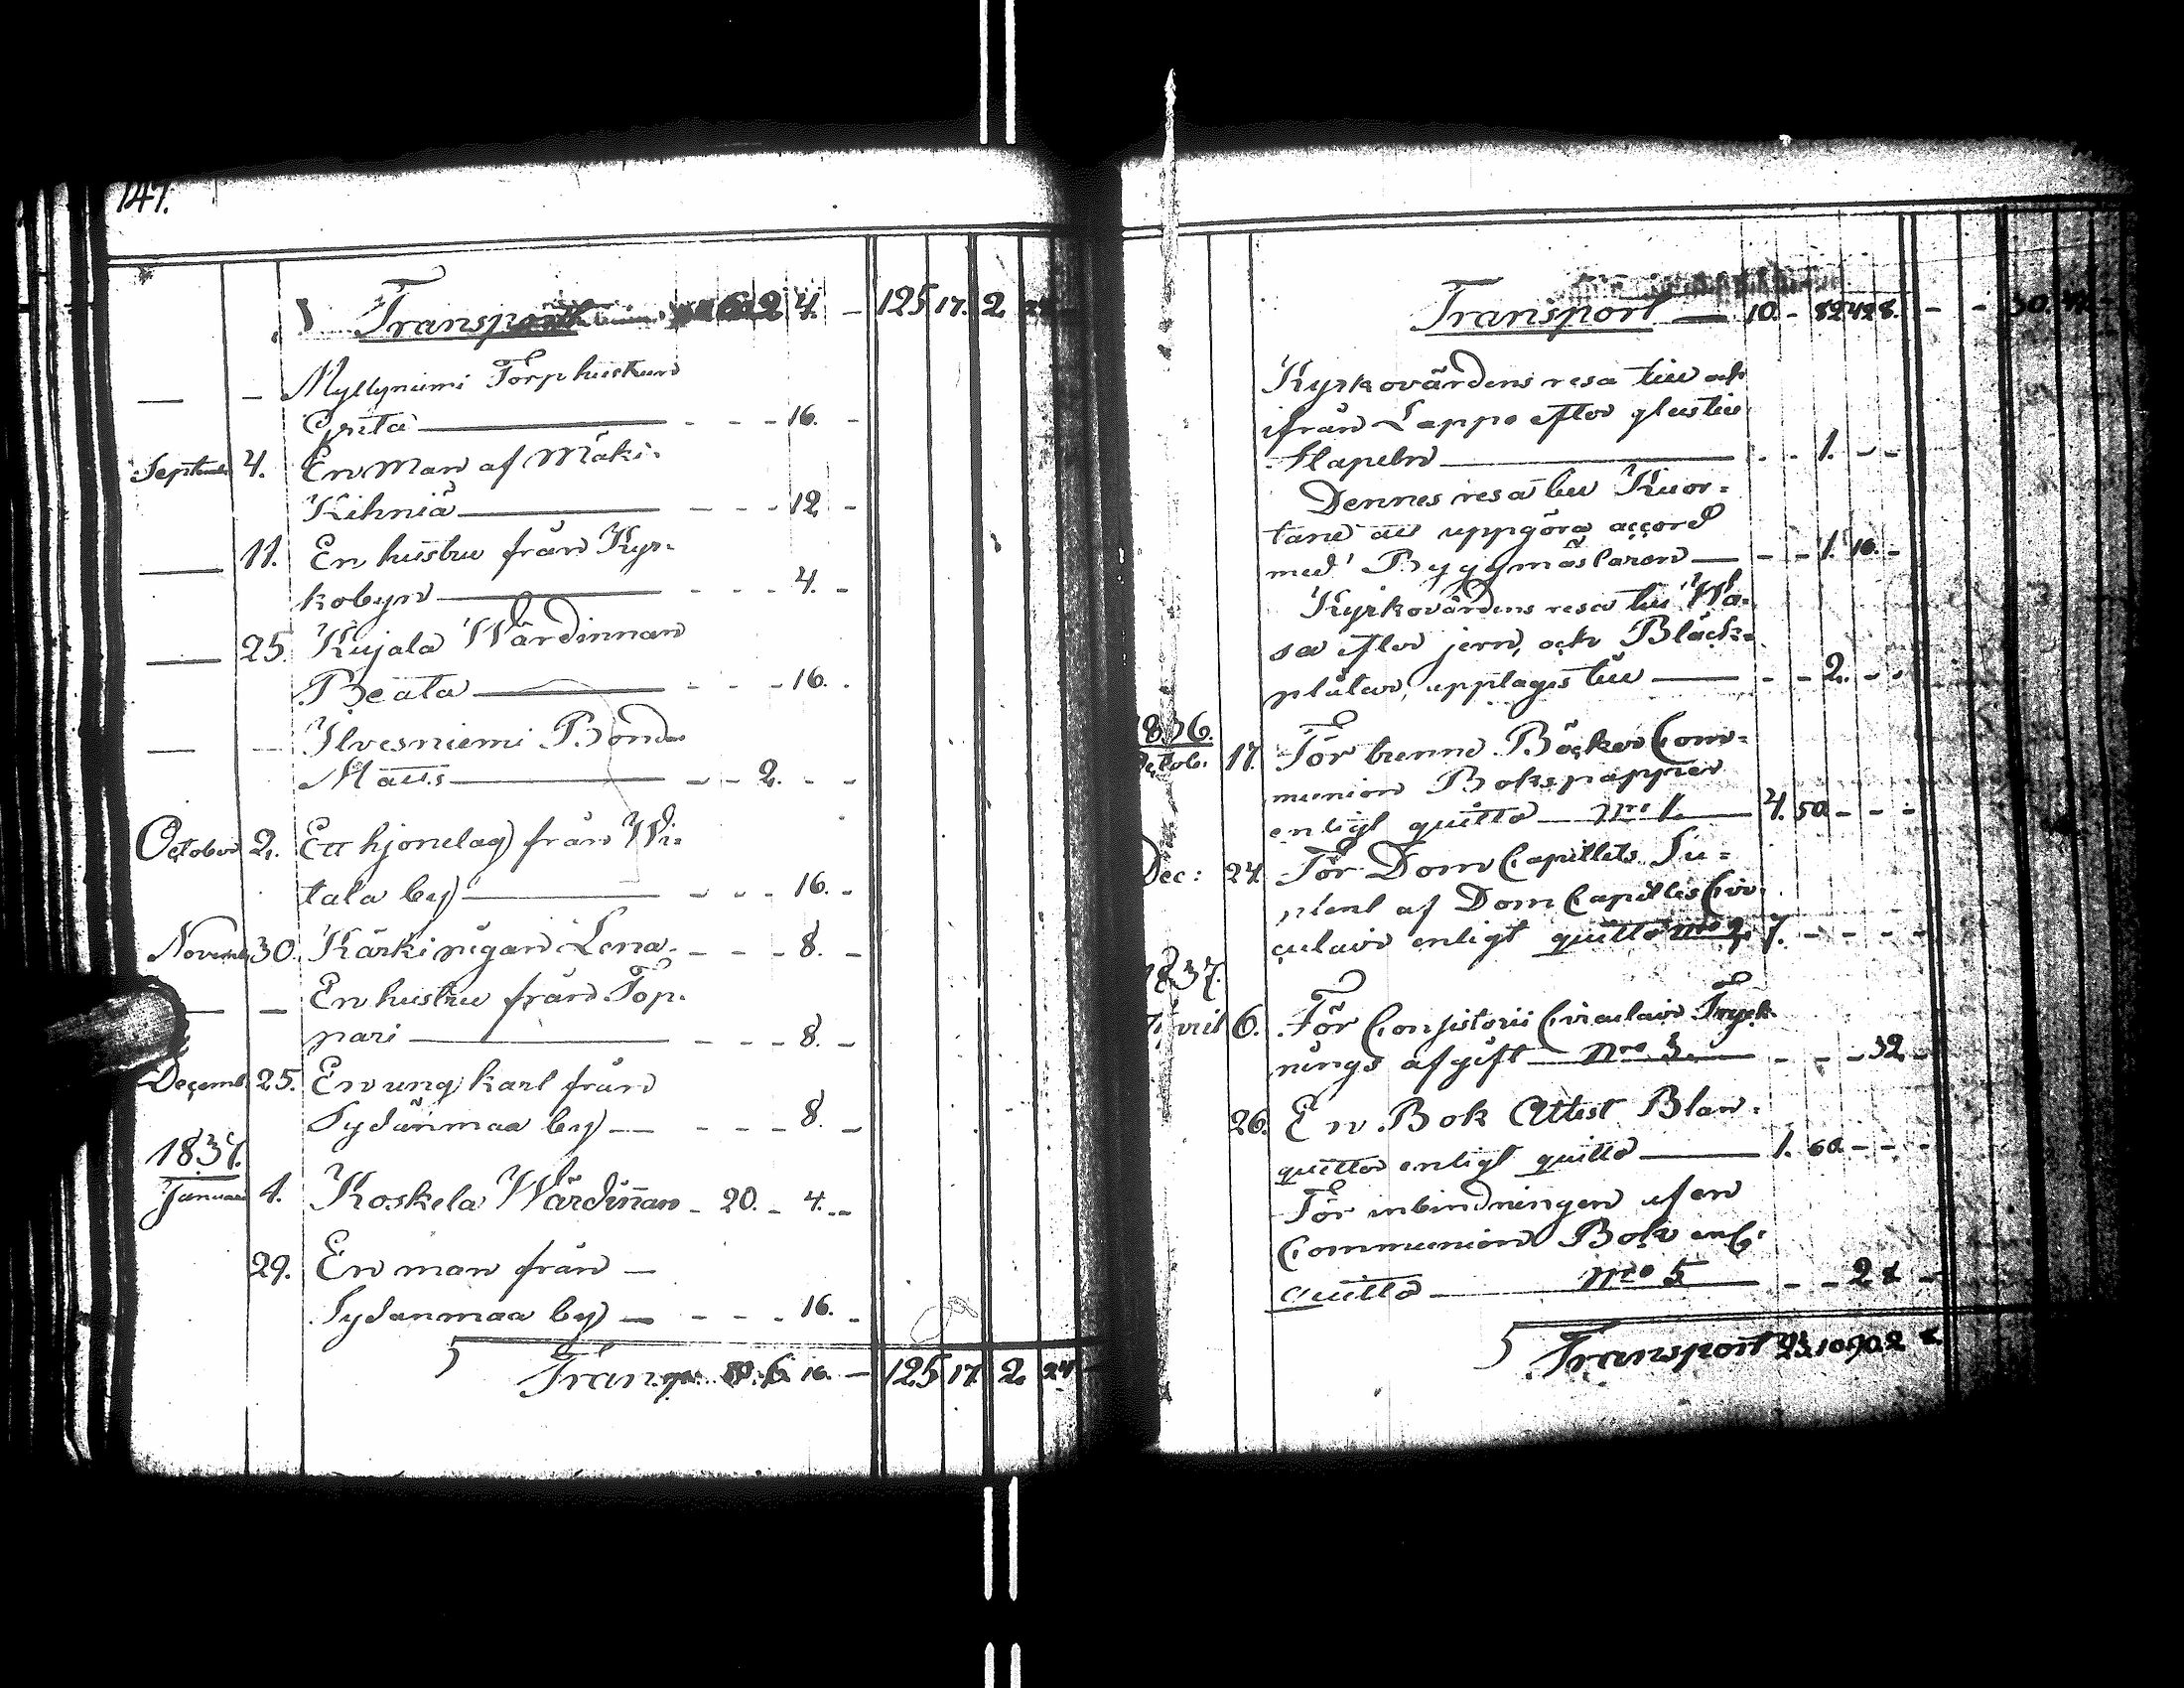 147.
Transport 62 4. — 125 17. 2. 24
— — Myllyniemi Torphustrun
Greta — — — — 16. —
Septemb 4. En Man af Mäki-
Kihniä — — — — 12 —
— 11. En hustru från Kyr-
kobyn — — — — 4. —
— 25. Kujala Wärdinnan
Beata — — — — 16. .
— — Ilvesniemi Bonde
Matts — — — 2. — —
October 2. Ett hjonelag från Wi-
tala by — — — — 16. —
Novemb 30. Kärki pigan Lena — — — 8. —
— — En hustru från Top-
pari — — — — 8. —
Decemb 25. En ung karl från
Sydänmaa by — — — — 8. —
1837.
Januari 1. Koskela Wärdinnan — 20. — 4. —
29. En man från —
Sydanmaa by — — — — 16. —
Transp. 6 16. — 125 17 2 24
Transport — 10. — 82 4 28. — — 30.
Kyrkovärdens resa till och
ifrån Lappo efter
Stapeln — — — 1. — —
Dennes resa till Kuor-
tane att uppgöra accord
med Byggmästaren — — — 1. 16. —
Kyrkovärdens resa till Wa-
sa efter jern, och Bläck-
plåtar, upptages till — — — 2. — —
1836.
Octob. 17. För tunne Böcker Com-
munion Bokspapper
enligt quitto nro 1. — 4. 50 — — —
Dec: 24 För Dom Capitlets Su-
plent af Dom Capitlets Cir-
culair enligt quitto nro 2. 7. — — — —
1837.
April 6. För Consistorii Circulair Tryck-
nings afgift — nro 3. — — — — 32. —
26. En Bok Attest Blan-
quetter enligt quitto — 1. 60. — — —
För inbindningen af en
Communion Bok enl.
quitto — nro 5 — — — 2
Transport 23 10 90 2